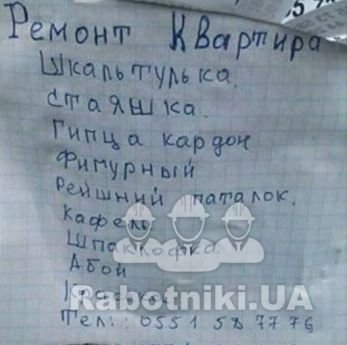 Ремонт Квартира
Шкальтулька.
стаяшка.
Гипца кардон
Фигурный
Рейшний паталок.
Кафель
Шпаклофка
Абой
Rabotniki.UA
Тел.: 0551 58 77 76